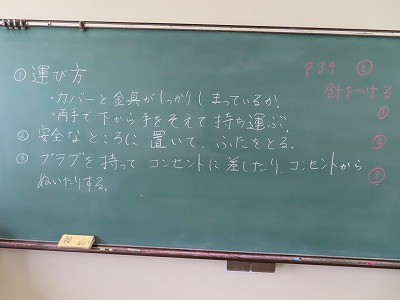 ①運び方
・カバーと金具がしっかりしまっているか。
・両手で下から手をそえて持ち運ぶ。
②安全なところに置いて、ふたをとる。
③プラグを持ってコンセントに差したり、コンセントから
ぬいたりする。
P.39 ②
針をつける
①
②
③